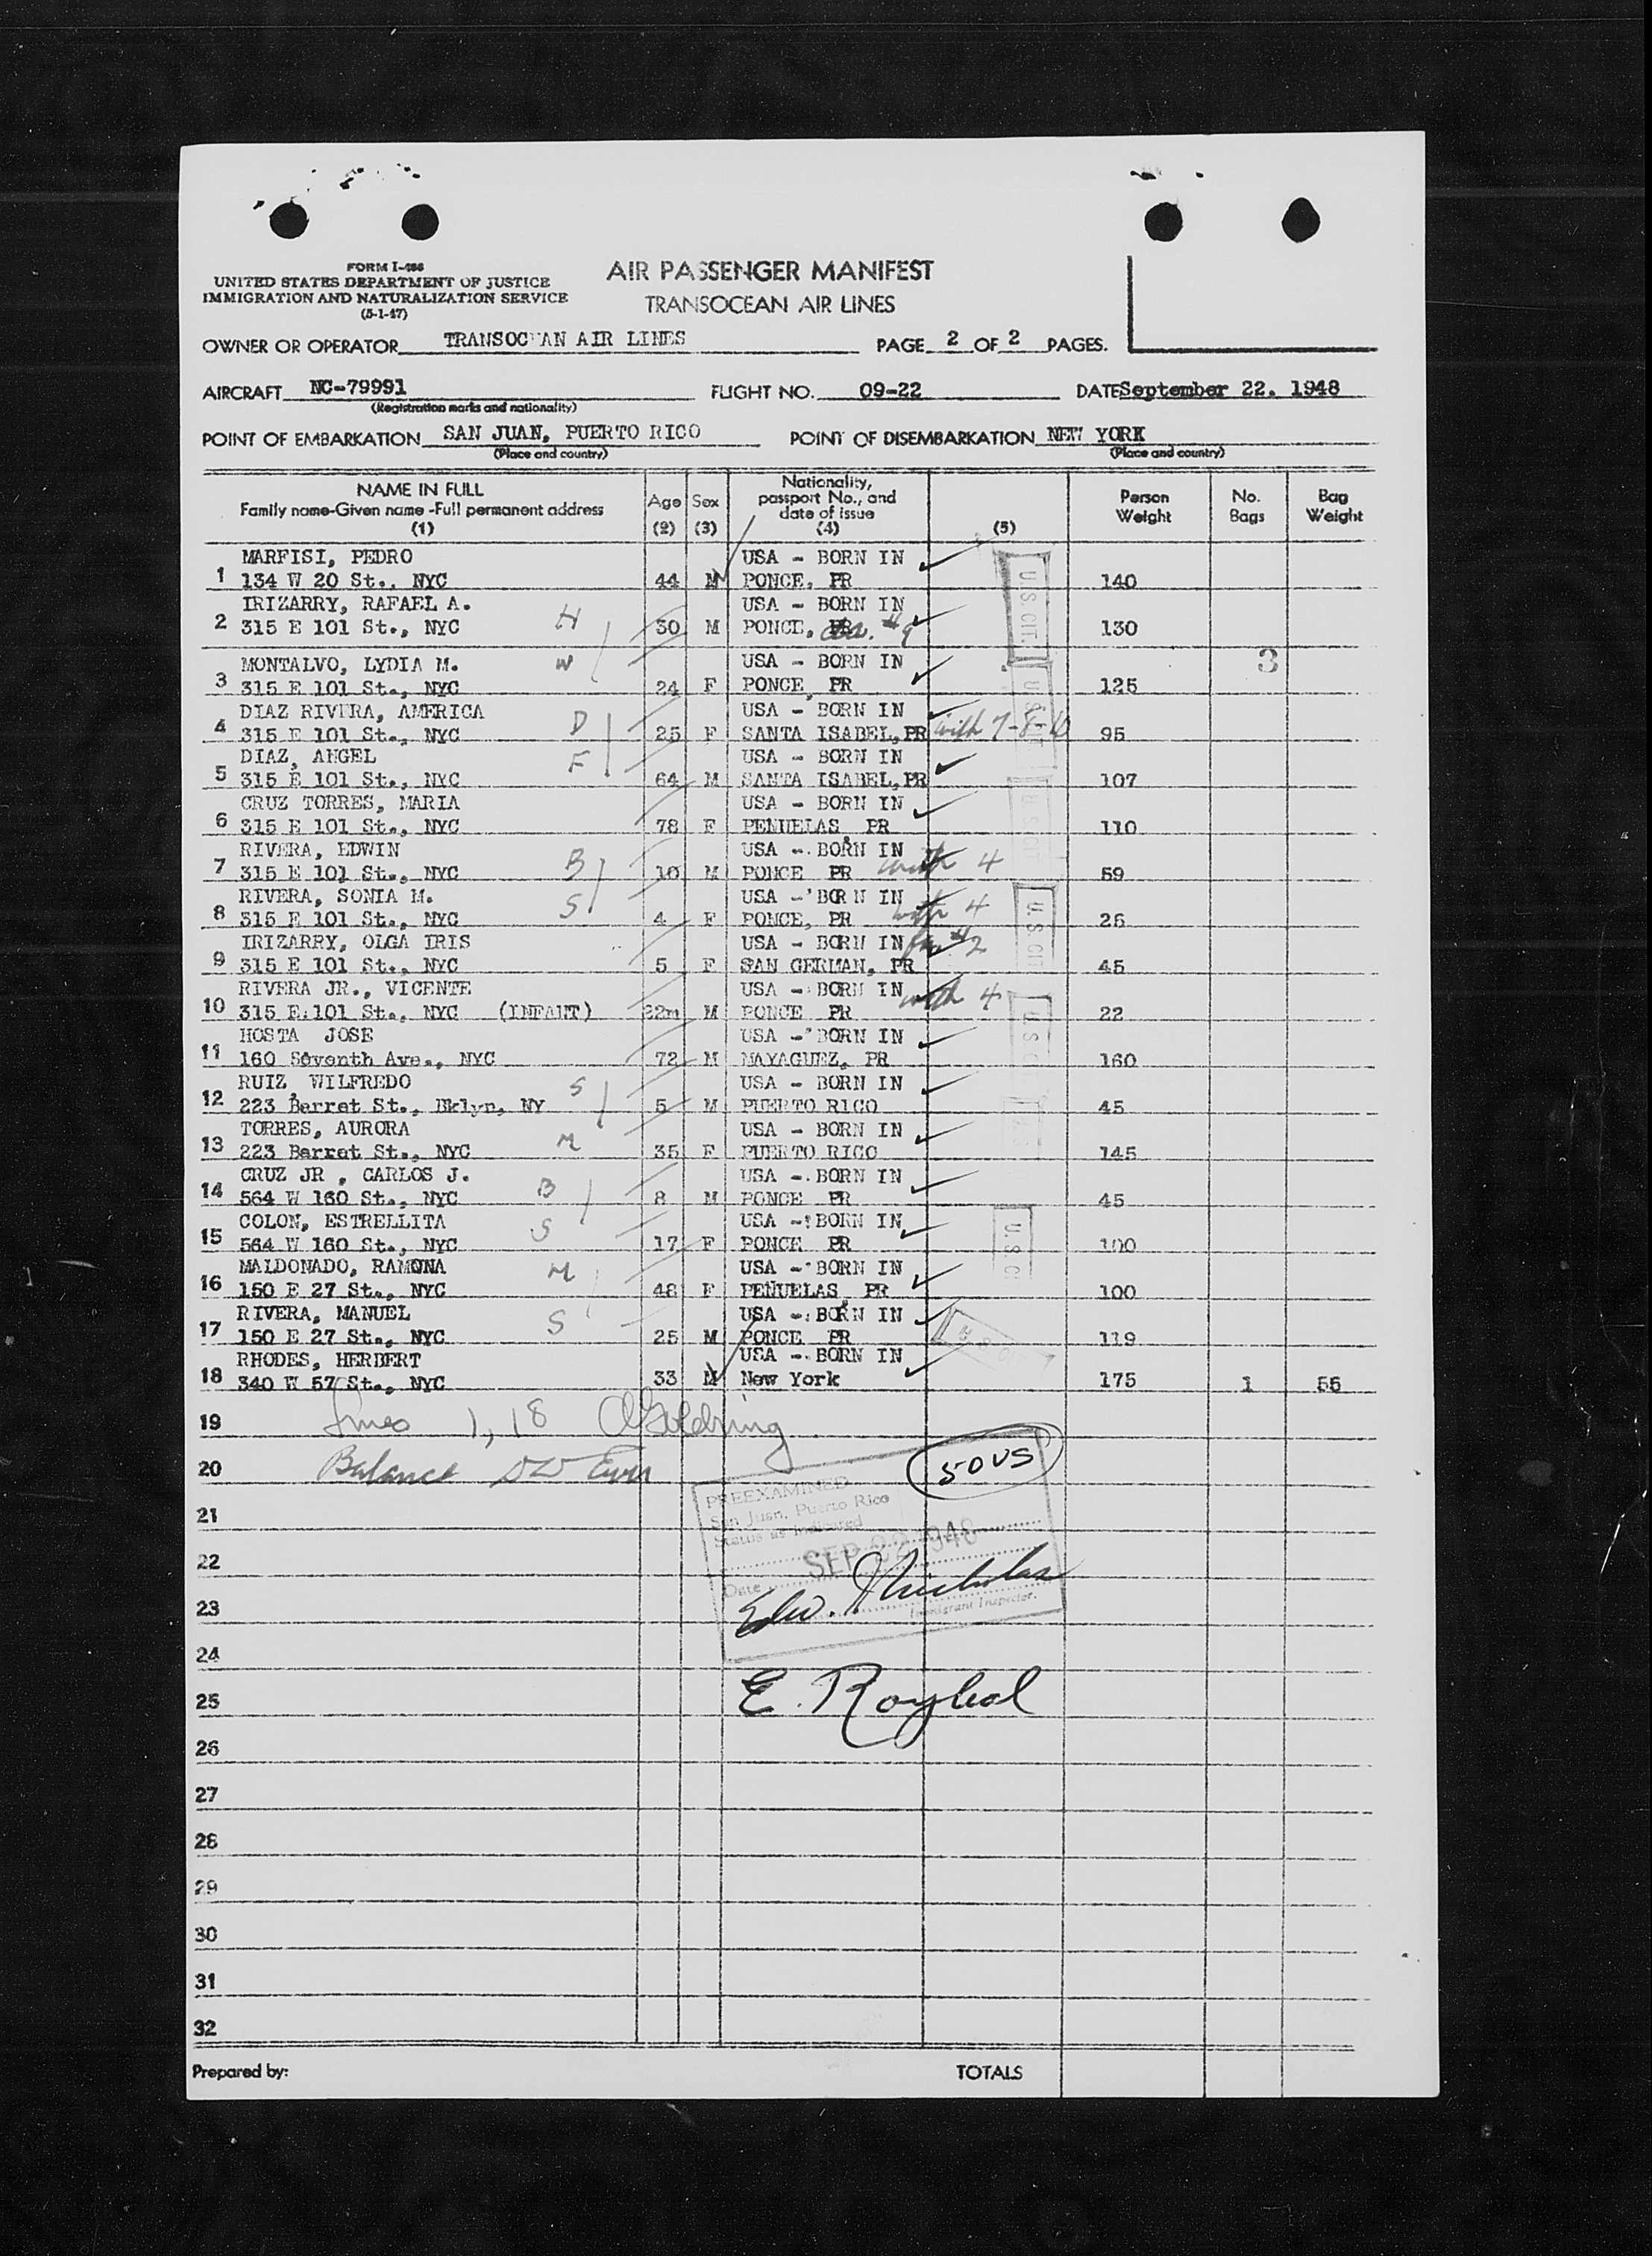 FORM I-466
UNITED STATES DEPARTMENT OF JUSTICE
IMMIGRATION AND NATURALIZATION SERVICE
(5-1-47)
AIR PASSENGER MANIFEST
TRANSOCEAN AIR LINES
OWNER OR OPERATOR TRANSOC AN AIR LINES PAGE 2 OF 2 PAGES.
AIRCRAFT NC-79991 FLIGHT NO. 09-22 DATE September 22. 1948
(Registration marks and nationality)
POINT OF EMBARKATION SAN JUAN, PUERTO RICO POINT OF DISEMBARKATION NEW YORK
(Place and country) (Place and country)
NAME IN FULL
Family name-Given name -Full permanent address
(1)
Age
(2)
Sex
(3)
Nationality,
passport No., and
date of issue
(4)
(5)
Person
Weight
No.
Bags
Bag
Weight
MARFISI, PEDRO USA - BORN IN
1 134 W 20 St., NYC 44 M PONCE, PR 140
IRIZARRY, RAFAEL A. H USA - BORN IN
2 315 E 101 St., NYC 30 M PONCE, #9 130
MONTALVO, LYDIA M. W USA - BORN IN 3
3 315 E 101 St., NYC 24 F PONCE, PR 125
DIAZ RIVERA, AMERICA D USA - BORN IN
4 315 E 101 St., NYC 25 F SANTA ISABEL, PR with 7-8-10 95
DIAZ, ANGEL F USA - BORN IN
5 315 E 101 St., NYC 64 M SANTA ISABEL, PR 107
CRUZ TORRES, MARIA USA - BORN IN
6 315 E 101 St., NYC 78 F PEÑUELAS, PR 110
RIVERA, EDWIN B USA - BORN IN
7 315 E 101 St., NYC 10 M PONCE PR with 4 59
RIVERA, SONIA M. S USA - BOR N IN
8 315 E 101 St., NYC 4 F PONCE, PR with 4 26
IRIZARRY, OLGA IRIS USA - BORN IN #2
9 315 E 101 St., NYC 5 F SAN GERMAN, PR 45
RIVERA JR., VICENTE USA - BORN IN
10 315 E. 101 St., NYC (INFANT) 22m M PONCE PR with 4 22
HOSTA JOSE USA - BORN IN
11 160 Seventh Ave., NYC 72 M MAYAGUEZ, PR 160
RUIZ, WILFREDO S USA - BORN IN
12 223 Barret St., Bklyn, NY 5 M PUERTO RICO 45
TORRES, AURORA M USA - BORN IN
13 223 Barret St., NYC 35 F PUERTO RICO 145
CRUZ JR , CARLOS J. B USA - BORN IN
14 564 W 160 St., NYC 8 M PONCE PR 45
COLON, ESTRELLITA S USA - BORN IN
15 564 W 160 St., NYC 17 F PONCE PR 100
MALDONADO, RAMONA M USA - BORN IN
16 150 E 27 St., NYC 48 F PEÑUELAS, PR 100
RIVERA, MANUEL S USA - BORN IN
17 150 E 27 St., NYC 25 M PONCE PR 119
RHODES, HERBERT USA - BORN IN
18 340 W 57 St., NYC 33 M New York 175 1 55
U.S. CIT.
U. S. CIT
U.S.C.
19 Lines 1, 18 Goldring
20 Balance 50 US
PREEXAMINED
San Juan, Puerto Rico
Status as indicated
21
22 SEP 22 1948
Date
23 Edw. Nicholas
Immigrant Inspector.
24
25 E. Roybal
26
27
28
29
30
31
32
Prepared by: TOTALS